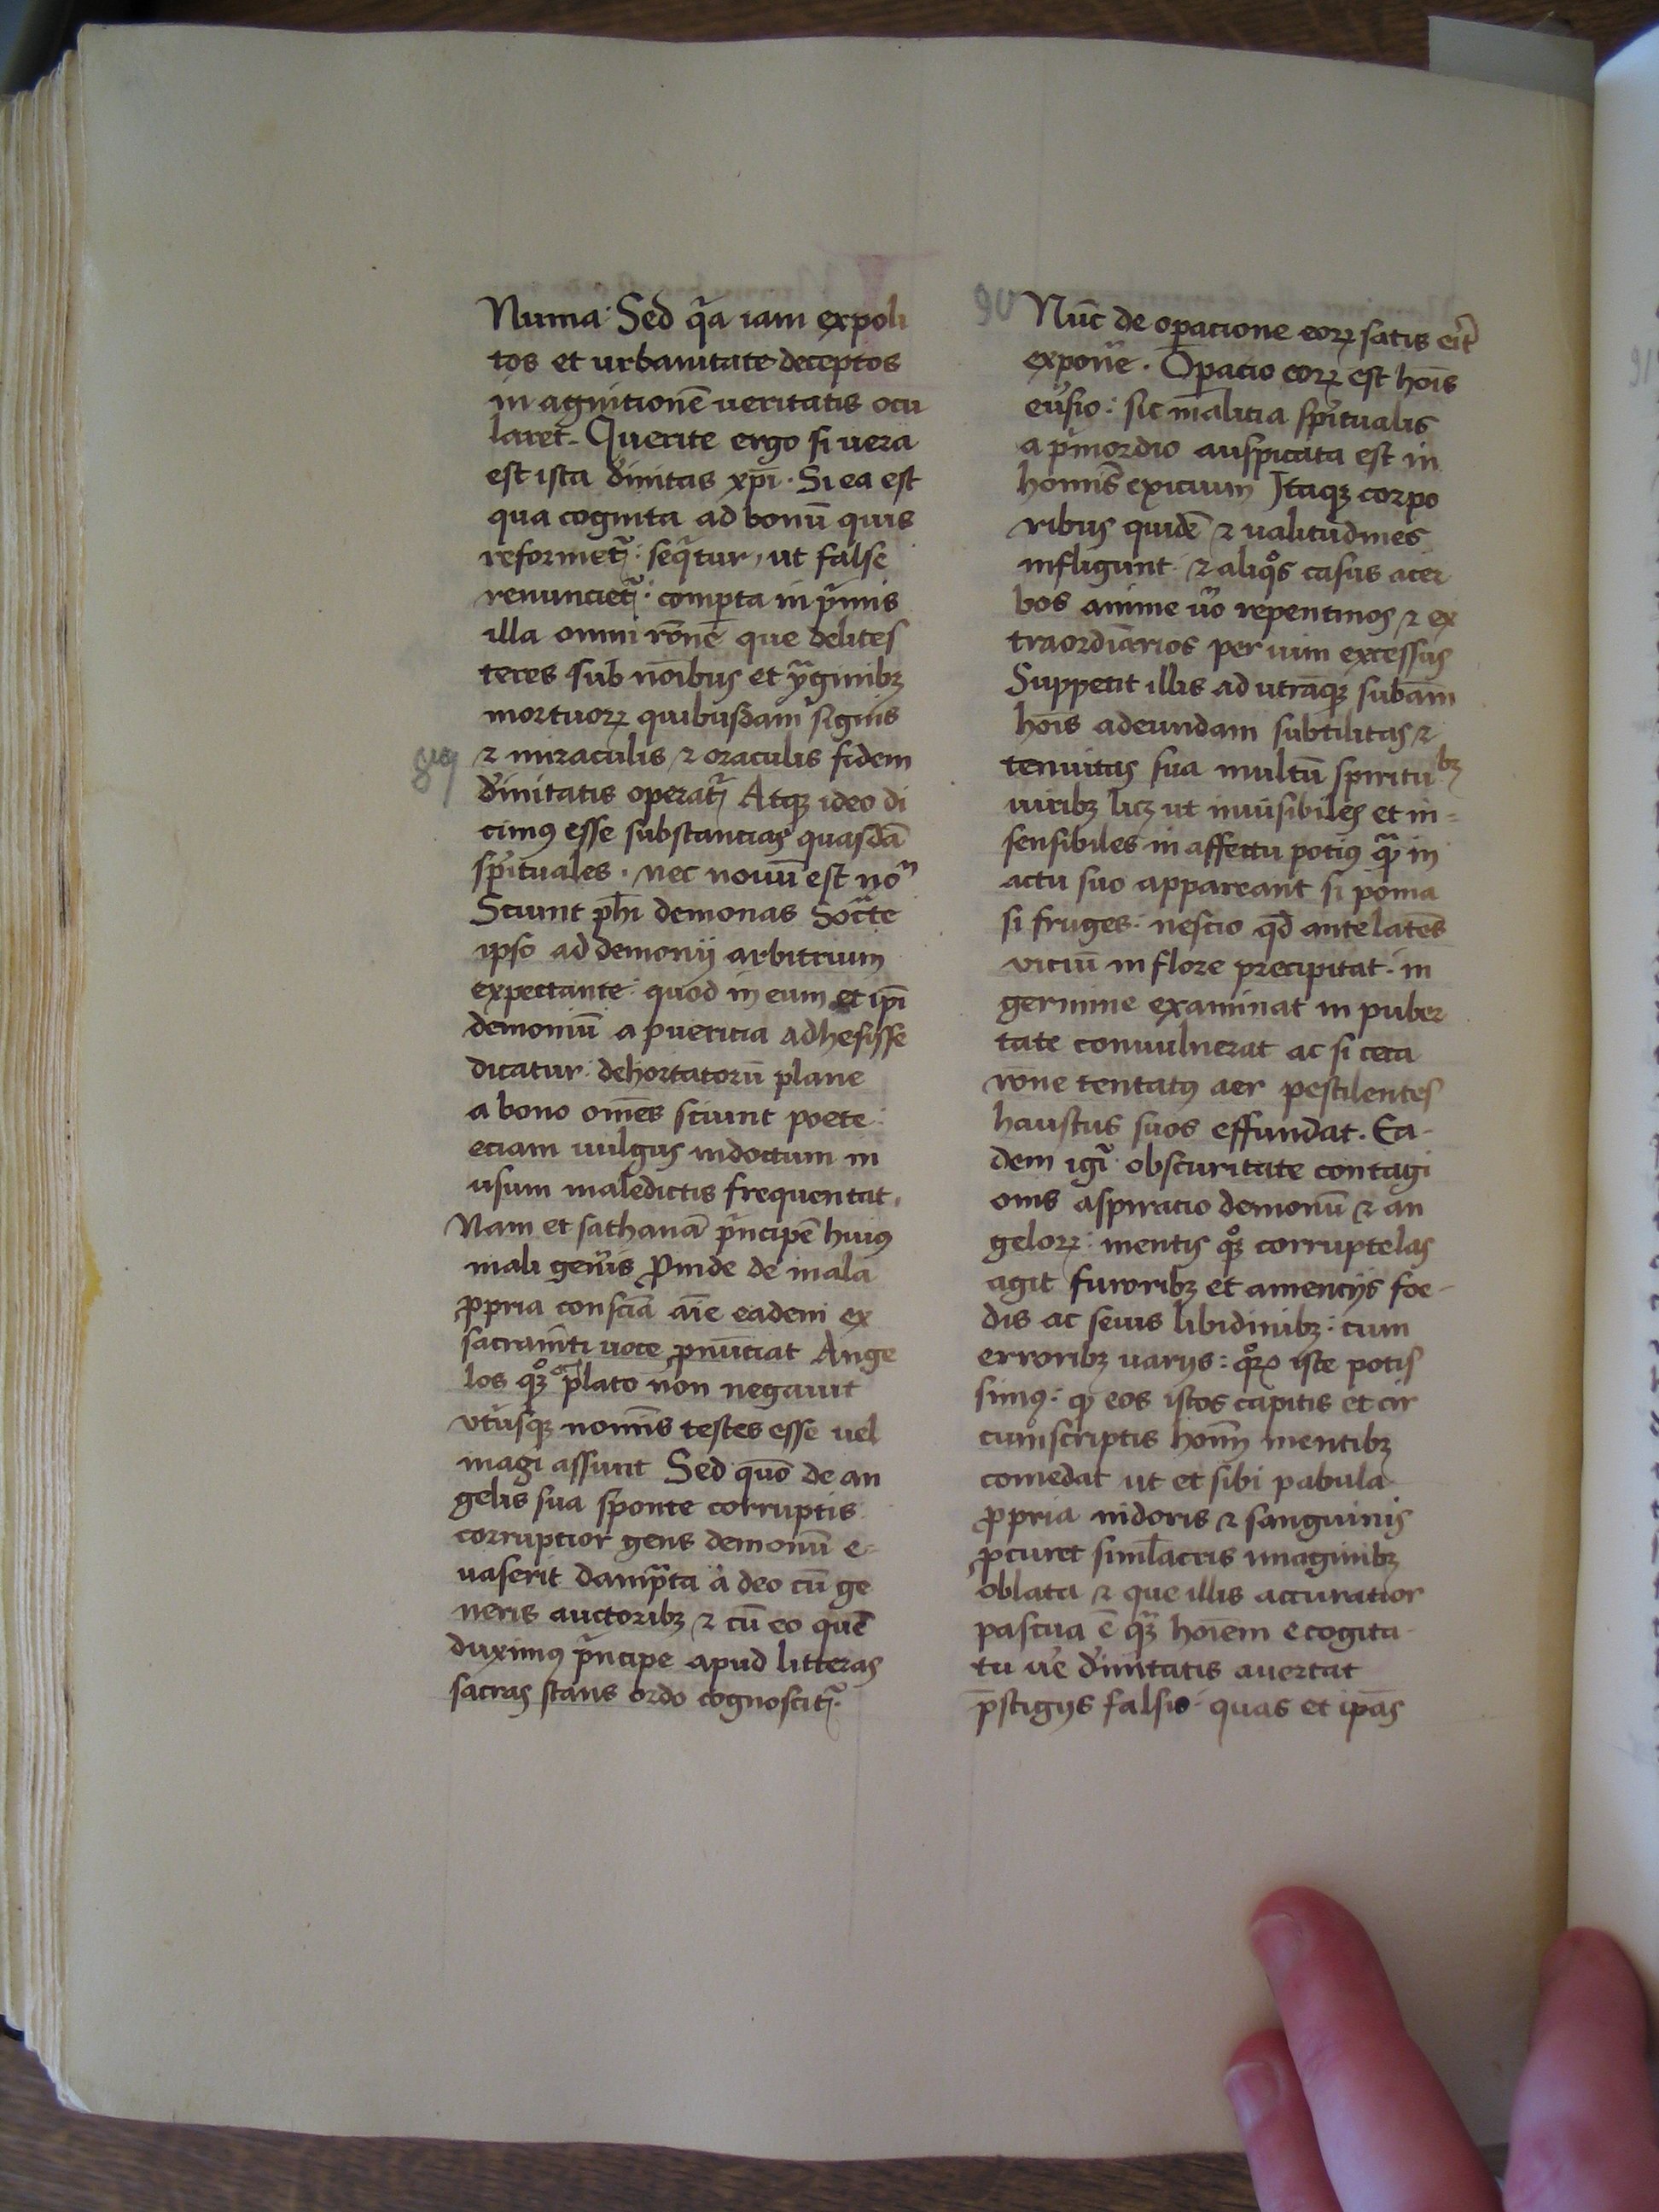 Numa· Sed qͣa iam expoli
tos et urbanitate deceptos
in agnitionē ueritatis ocu
laret. Querite ergo si uera
est ista diͥnitas xp̄i · Si ea est
qua cognita ad bonū quis
reformet᷑ : seqͥtur, ut false
renunciet᷑ · comꝑta in pͥmis
illa omni rōne que delites
teces sub nōibus et ymͣginibꝫ
mortuoꝝ quibusdam signis
⁊ miraculis ⁊ oraculis fidem
diͥnitatis operat᷑ Atqꝫ ideo di
cimꝰ esse substancias quasdā
spͥituales · nec nouū est noͫ
Sciunt ph̄i demonas Socͣte
ipso ad demonij arbitrium
expectante· quod in eum et ip̄i
demoniū a puericia adhesisse
dicatur· dehortatorū plane
a bono om̄es sciunt poete·
eciam uulgus indoctum in
usum maledictis frequentat,
Nam et sathanā pͥncipē huiꝰ
mali gen̄is ꝓinde de mala
ꝓpria consciā aīe eadem ex
sacramn̄ti uoce ꝓnūciat Ange
los qͦꝫ plato non negauit
vtͥusqꝫ nomīs testes esse uel
magi assunt Sed quō de an
gelis sua sponte corruptis
corruptior gens demonū e-
uaserit dampͣta a deo cū ge
neris auctoribꝫ ⁊ cū eo quē
diximꝰ pͥncipe apud litteras
sacras stans ordo cognoscit᷑·
Nūc de oꝑacione eoꝝ satis eit᷑
expon̄e · Oꝑacio eoꝝ est hoīs
eūsio : sic malitia spͥitualis
a pͥmordio auspicata est in
homīs exicium Itaqꝫ corpo
ribus quidē ⁊ ualitudines
infligunt · ⁊ aliqͦs casus acer
bos anime ūo repentinos ⁊ ex
traordīarios per uim excessus
Suppetit illis ad utrāqꝫ subām
hoīs adeundam subtilitas ⁊
tenuitas sua multū spiritubꝫ
uiribꝫ licꝫ ut inuisibiles et in=
sensibiles in affectu potiꝰ qͣꝫ in
actu suo appareant si poma
si fruges· nescio qd̄ ante latēs
viciū in flore precipitat· in
germine examinat in puber
tate conuulnerat ac si ceca
rōne tentatꝰ aer pestilentes
haustus suos effundat. Ea-
dem igͥ· obscuritate contagi
onis aspiratio demonū ⁊ an
geloꝝ· mentis qͦꝫ corruptelas
agit furoribꝫ et amencijs foe-
dis ac seuis libidinibꝫ : cum
erroribꝫ varijs : qͦꝝ iste potis
simꝰ· ꝙ eos istos capitis et cir
cumscriptis homī mentibꝫ
comedat ut et sibi pabula
ꝓpria nidoris ⁊ sanguinis
ꝓcuret siml̄acris imaginibꝫ
oblata ⁊ que illis accuratior
pascua ē qͣꝫ hoīem e cogita-
tu ue᷑ diͥnitatis auertat
p̄stigijs falsis· quas et ip̄as